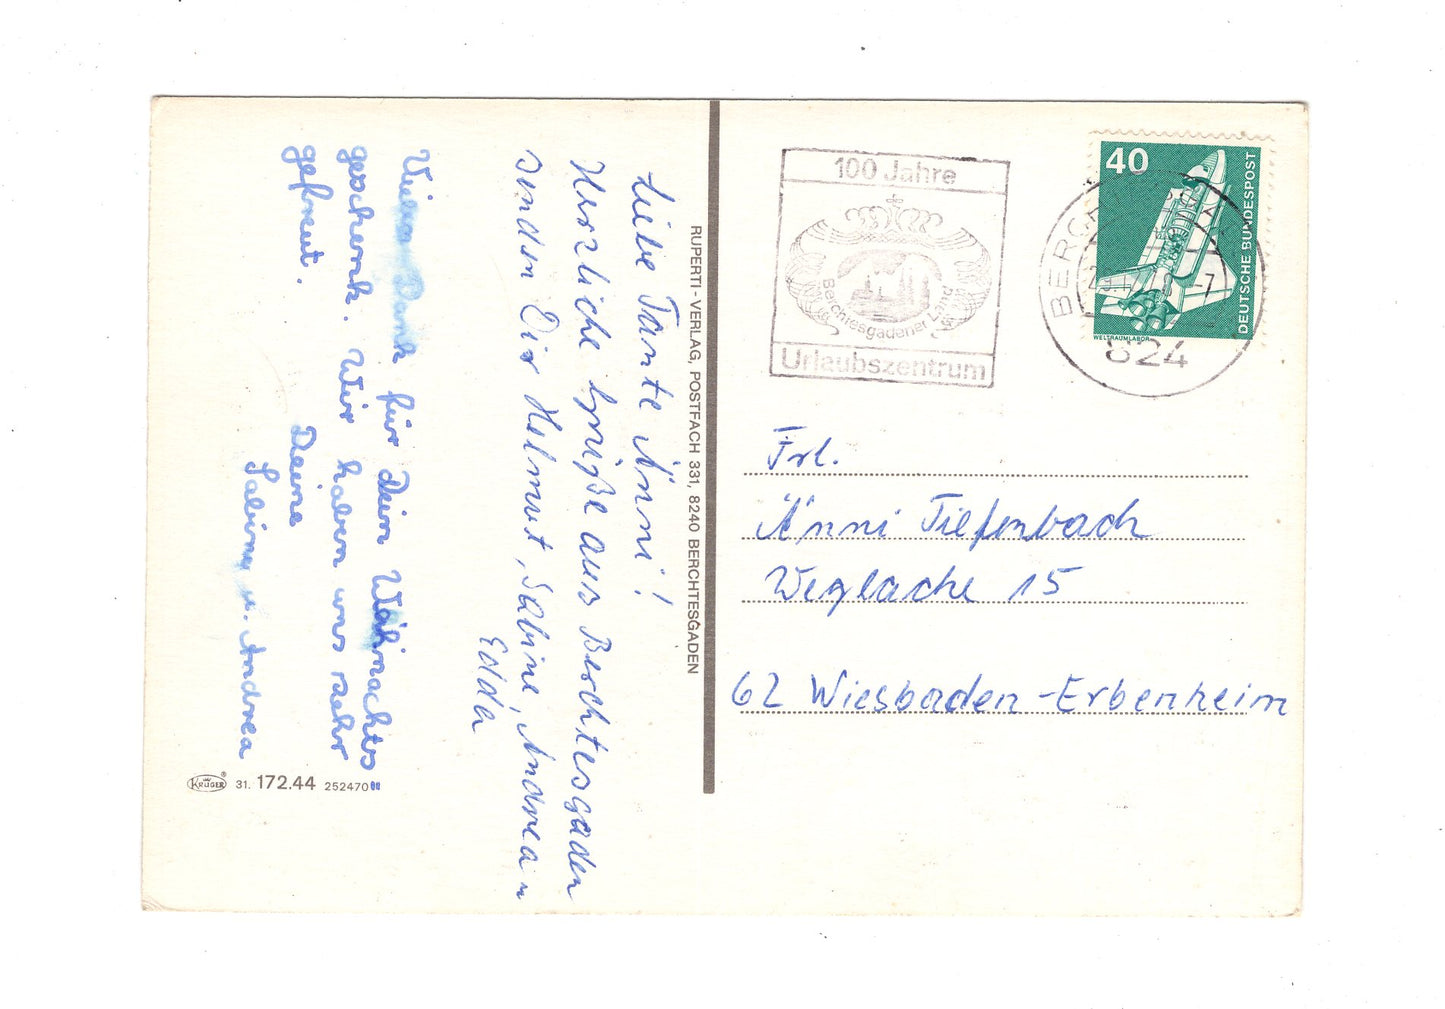 Liebe Tante Änni!
Herzliche Grüße aus Berchtesgaden
senden Dir Helmut, Sabine, Andrea u.
Edda
Vielen Dank für dein Weihnachts
geschenk. Wir haben uns sehr
gefreut.
Deine
Sabine u. Andrea
KRÜGER ® 31. 172.44 252470
RUPERTI-VERLAG, POSTFACH 331, 8240 BERCHTESGADEN
100 Jahre
Berchtesgadener Land
Urlaubszentrum
824
40
DEUTSCHE BUNDESPOST
WELTRAUMLABOR
Frl.
Änni Tiefenbach
Weglache 15
62 Wiesbaden-Erbenheim